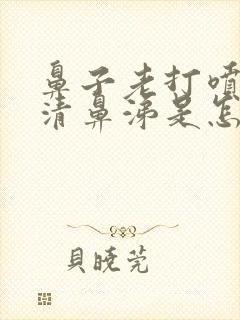 鼻子老打喷
清鼻涕是怎
貝曉莞